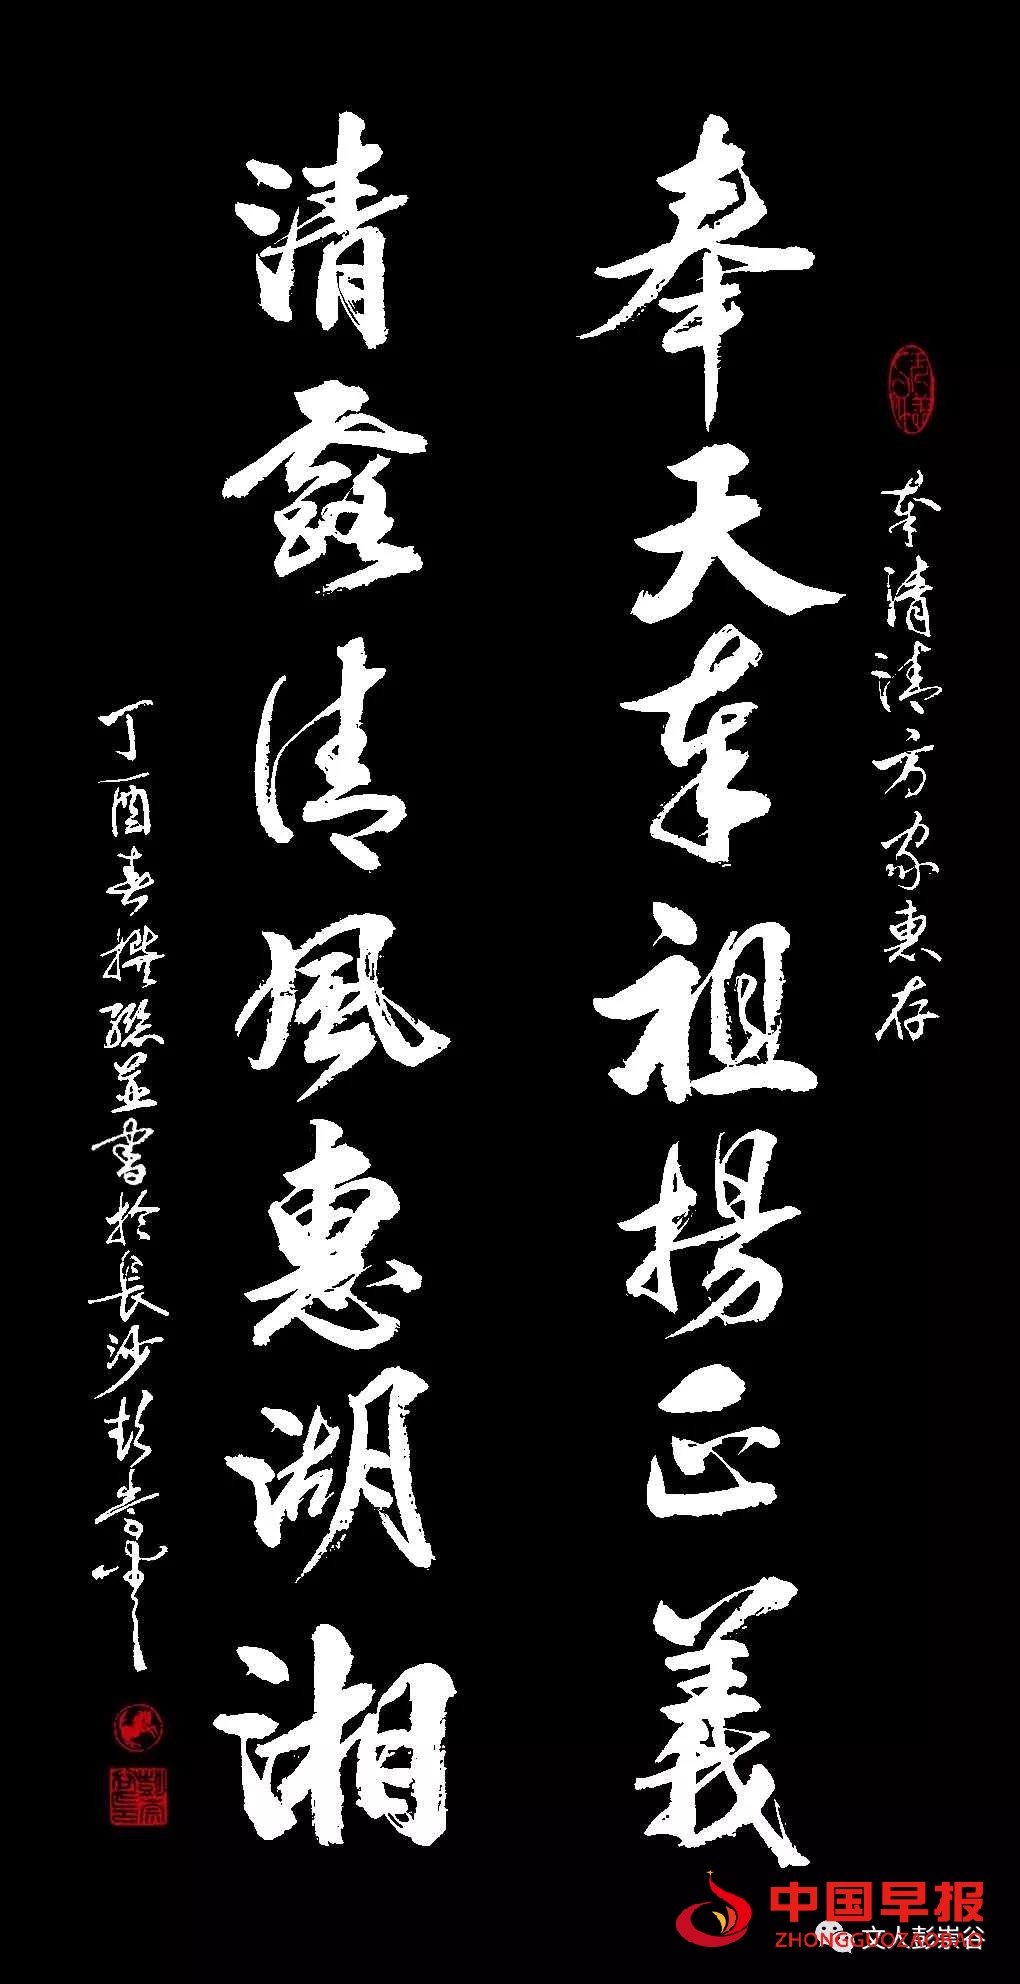 奉清清方家惠存
奉天奉祖揚正義
清露清風惠湖湘
丁酉春撰聯並書於長沙彭崇谷
中国早报
ZHONGGUOZAOBAO
文人彭崇谷